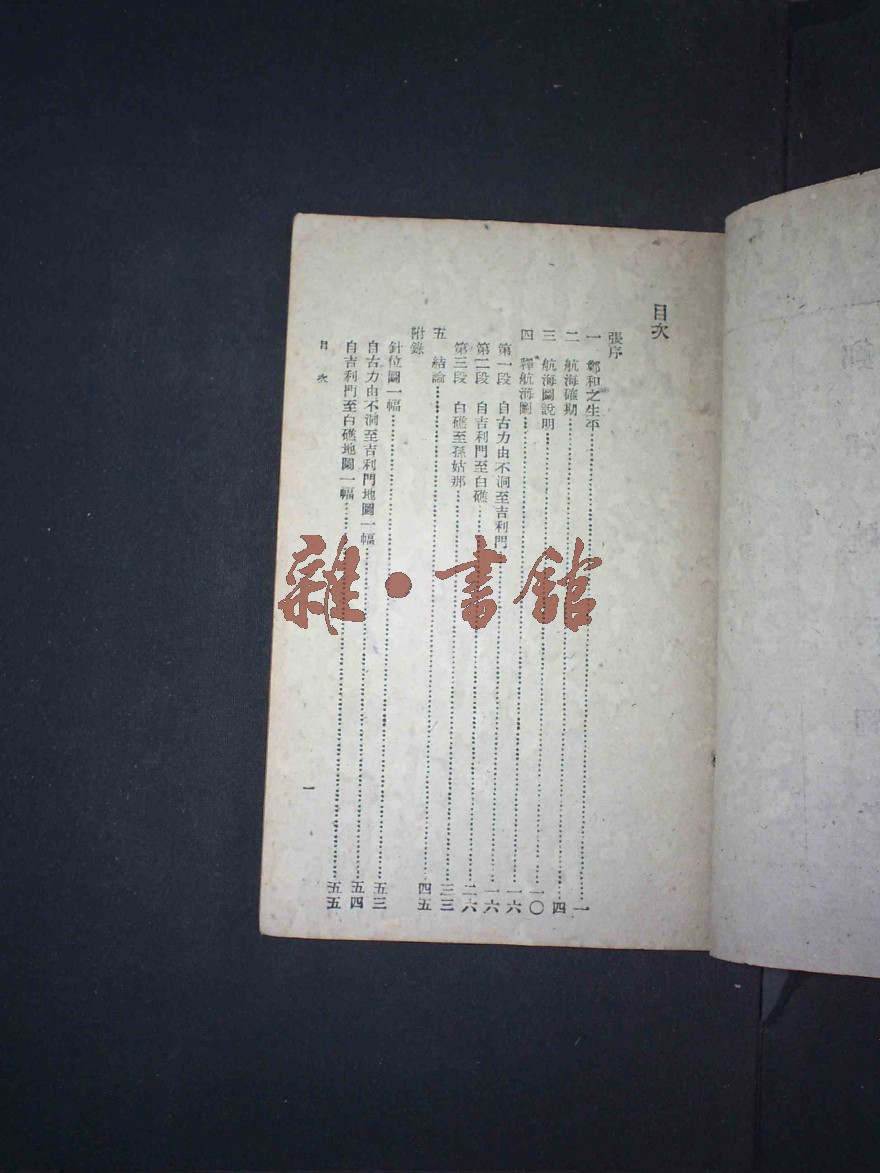 目次
張序
一 鄭和之生平……一
二 航海確期……四
三 航海圖說明……一〇
四 釋航海圖……一六
第一段 自古力由不洞至吉利門……一六
第二段 自吉利門至白礁……二六
第三段 白礁至孫姑那……三三
五 結論……四五
附錄
針位圖一幅……五三
自古力由不洞至吉利門地圖一幅……五四
自吉利門至白礁地圖一幅……五五
目次 一
雜·書館